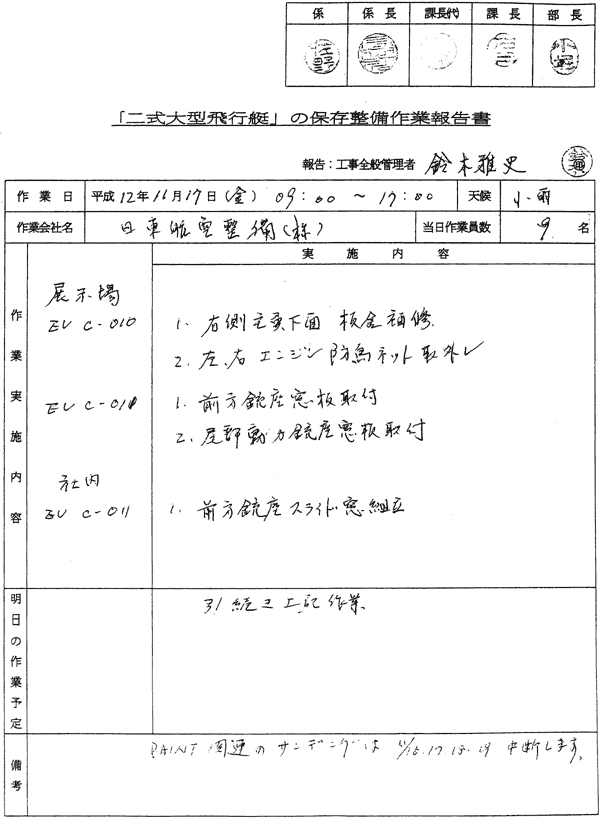 係 係長 課長(代) 課長 部長
「二式大型飛行艇」の保存整備作業報告書
報告：工事全般管理者 鈴木雅史
作業日 平成12年11月17日(金) 09:00 ～ 17:00 天候 小雨
作業会社名 日東航空整備(株) 当日作業員数 9名
作業実施内容
実施内容
展示場
EU C-010 1. 右側主翼下面 板金補修
2. 左、右エンジン防鳥ネット取外し
EU C-011 1. 前方銃座窓板取付
2. 尾部動力銃座窓板取付
社内
EU C-011 1. 前方銃座スライド窓組立
明日の作業予定
引続き上記作業
備考
PAINT関連のサンディングは 11/16.17.18.19 中断します。